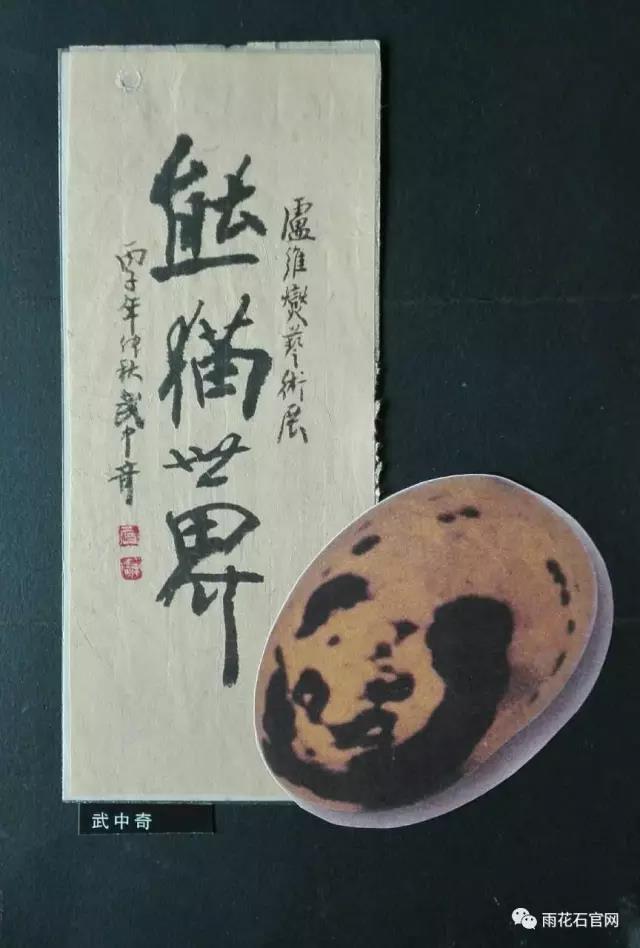 盧維燮藝術展
熊猫世界
丙子年仲秋武中奇
武中奇
雨花石官网